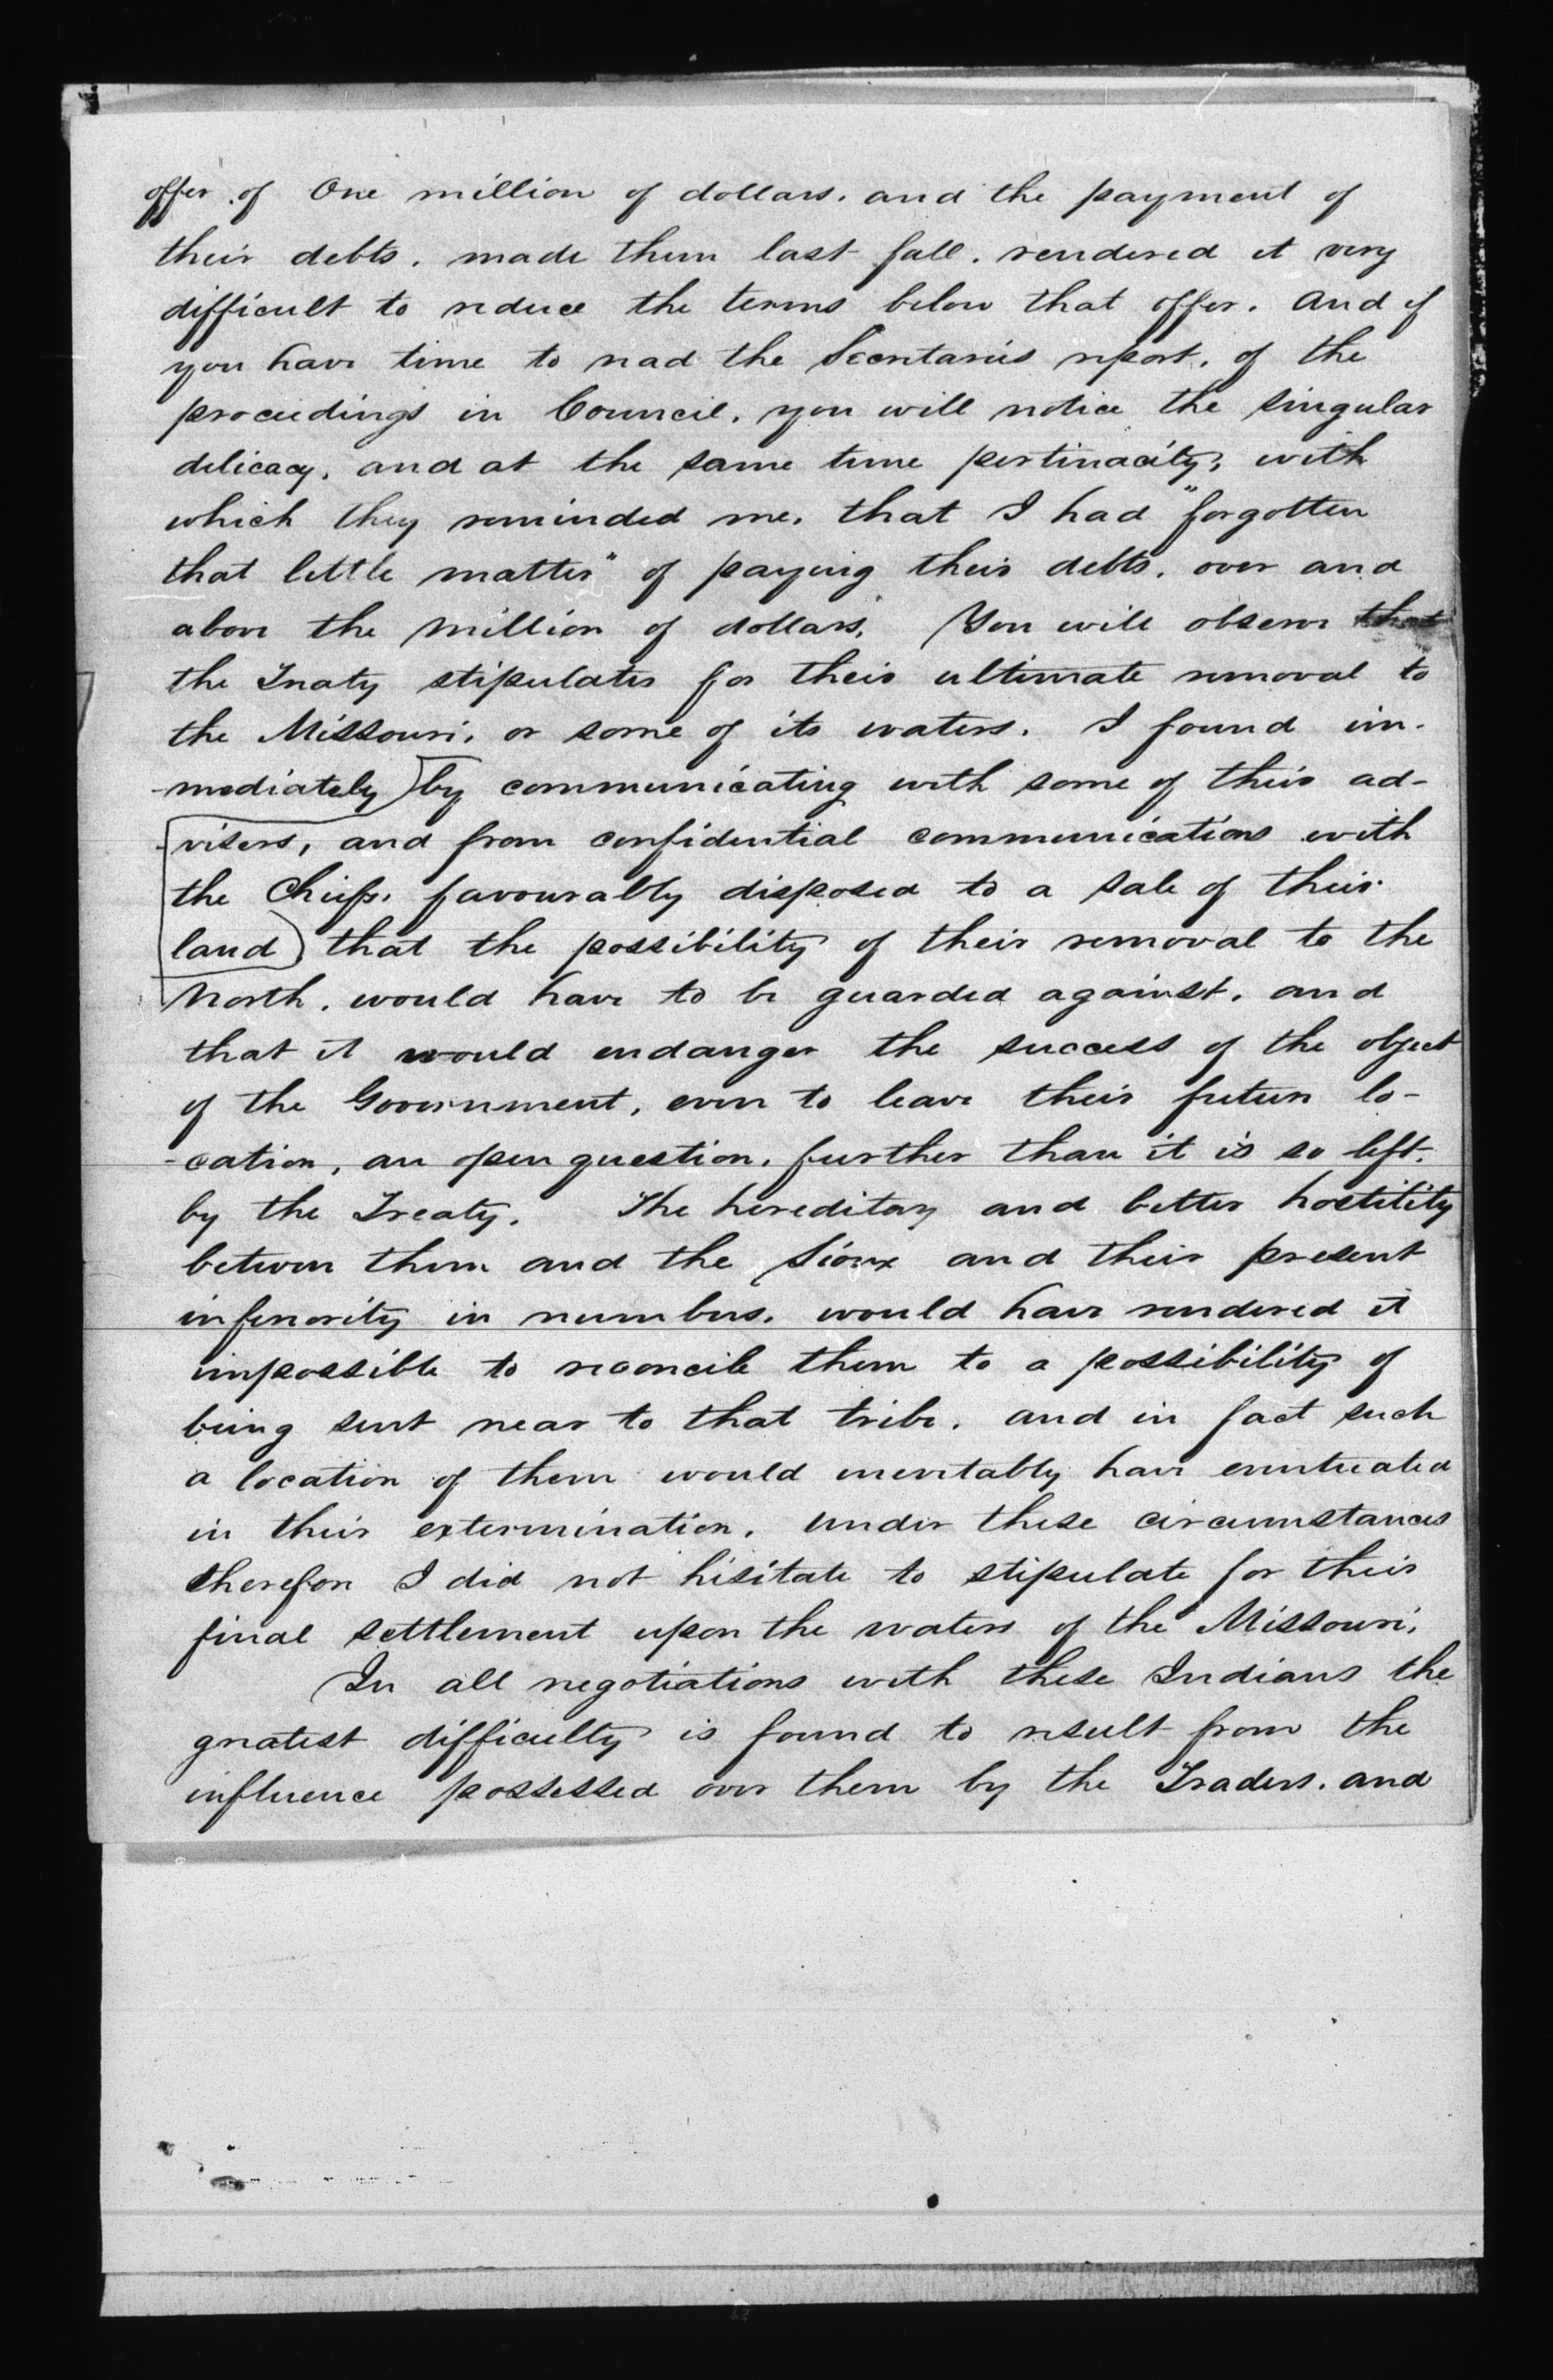 offer of One million of dollars. and the payment of
their debts. made them last fall. rendered it very
difficult to reduce the terms below that offer. And if
you have time to read the Secretaries report. of the
proceedings in Council. you will notice the singular
delicacy. and at the same time pertinacity, with
which they reminded me. that I had "forgotten
that little matter" of paying their debts. over and
above the million of dollars. You will observe that
the Treaty stipulates for their ultimate removal to
the Missouri. or some of its waters. I found im-
-mediately) by communicating with some of their ad-
-visers, and from confidential communications with
the Chiefs. favourably disposed to a sale of their
land) that the possibility of their removal to the
North. would have to be guarded against. and
that it would endanger the success of the object
of the Government, even to leave their future lo-
-cation, an open question. further than it is so left.
by the Treaty. The hereditary and bitter hostility
between them and the Sioux and their present
inferiority in numbers. would have rendered it
impossible to reconcile them to a possibility of
being sent near to that tribe. and in fact such
a location of them would inevitably have eventuated
in their extermination. Under these circumstances
therefore I did not hesitate to stipulate for their
final settlement upon the waters of the Missouri.
In all negotiations with these Indians the
greatest difficulty is found to result from the
influence possessed over them by the Traders. and